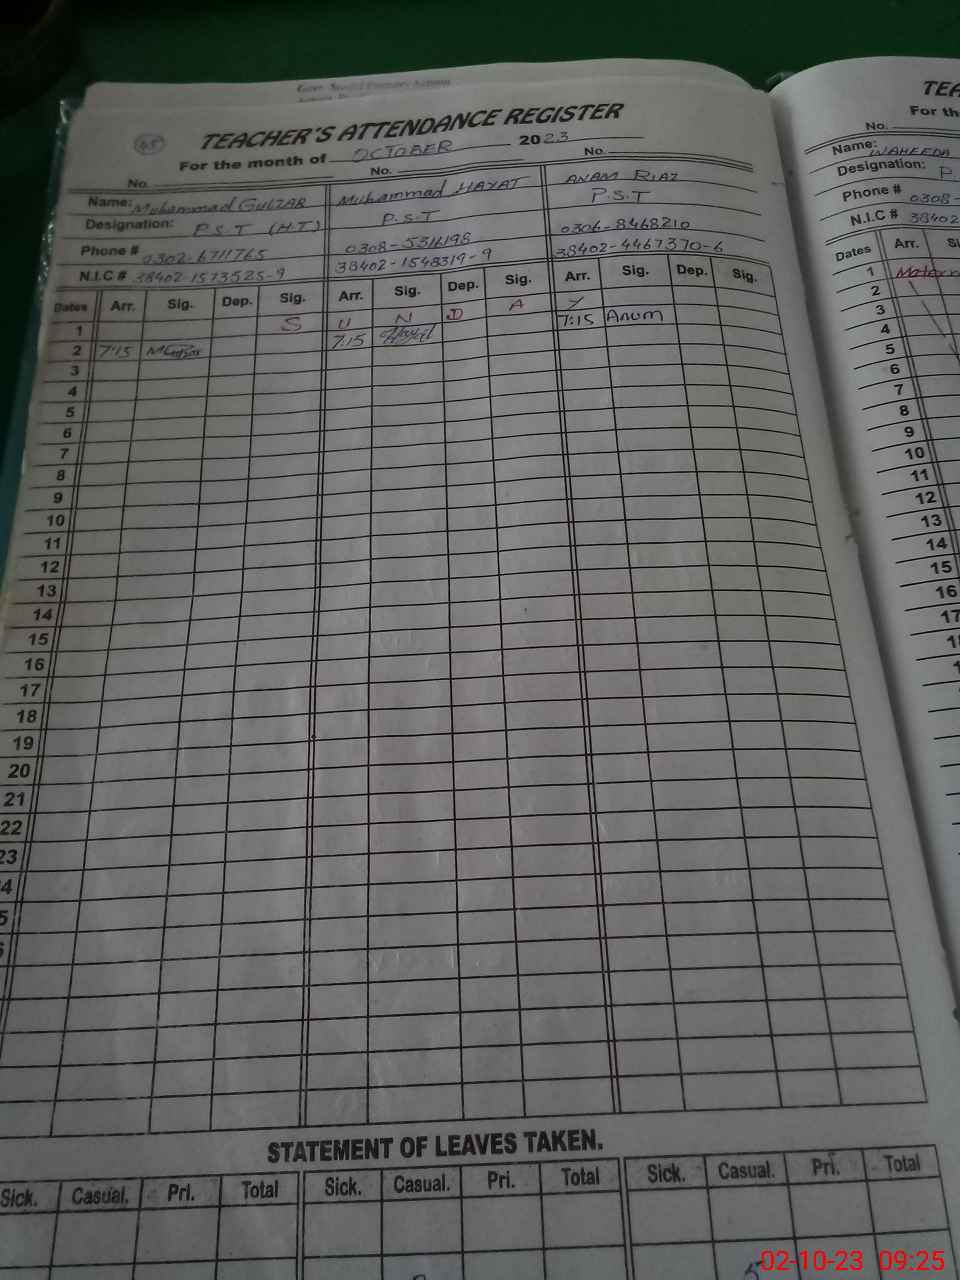 TEACHER'S ATTENDANCE REGISTER
For the month of OCTOBER 2023
No. No. No.
Name: Muhammad GULZAR Muhammad HAYAT ANAM RIAZ
Designation: P.S.T (H.T) P.S.T P.S.T
Phone # 0302-6711765 0308-5316198 0306-8468210
N.I.C # 38402-1573525-9 38402-1548319-9 38402-4467370-6
Dates Arr. Sig. Dep. Sig. Arr. Sig. Dep. Sig. Arr. Sig. Dep. Sig.
1 S U N D A Y
2 7:15 7:15 7:15 Anum
3
4
5
6
7
8
9
10
11
12
13
14
15
16
17
18
19
20
21
22
23
STATEMENT OF LEAVES TAKEN.
Sick. Casual. Pri. Total Sick. Casual. Pri. Total Sick. Casual. Pri. Total
TEA
For th
No.
Name: WAHEEDA
Designation: P.
Phone # 0308-
N.I.C # 38402
Dates Arr. Si
1
2
3
4
5
6
7
8
9
10
11
12
13
14
15
16
17
02-10-23 09:25